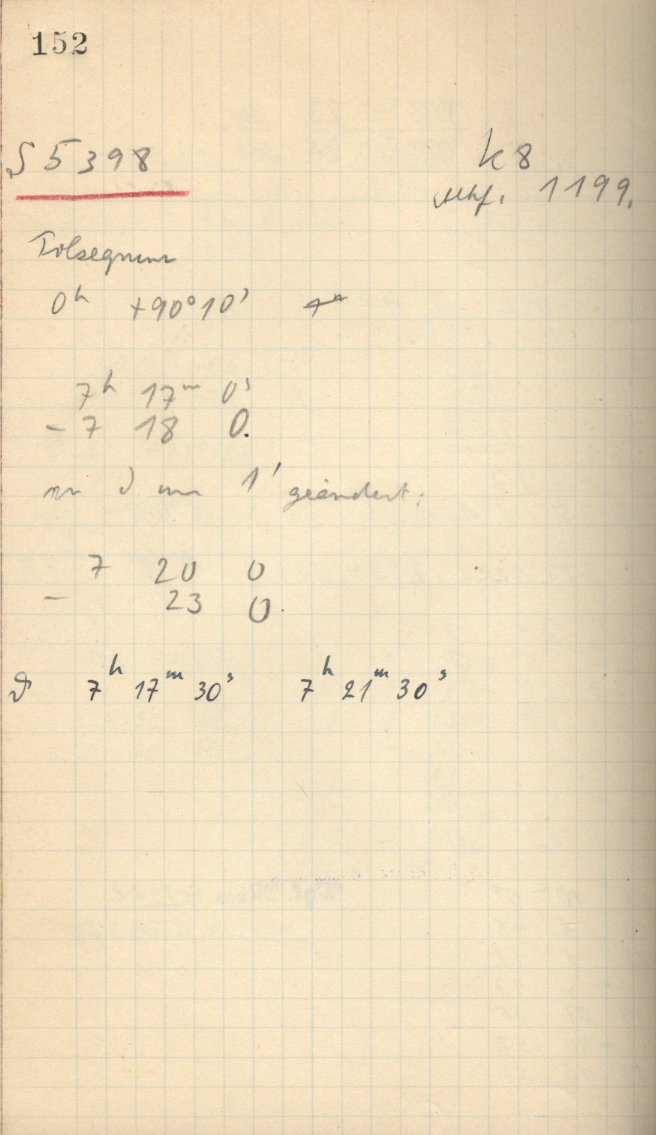 152
S 5398
k 8
Auf. 1199.
Polsequenz
0ʰ +90°10'
7ʰ 17ᵐ 0ˢ
- 7 18 0.
in δ um 1' geändert:
7 20 0
- 23 0.
ϑ 7ʰ 17ᵐ 30ˢ 7ʰ 21ᵐ 30ˢ